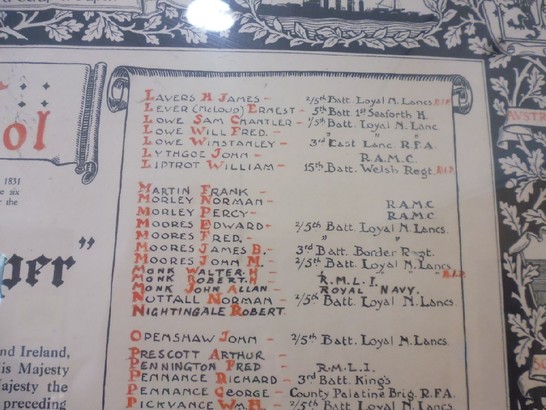 LAVERS H JAMES - 2/5th Batt. Loyal N. Lancs. R.I.P.
LEVER (McCloud) ERNEST - 5th Batt 1st Seaforth H.
LOWE SAM CHANTLER - 1/5th Batt. Loyal N. Lanc
LOWE WILL FRED. - " "
LOWE WINSTANLEY - 3rd East Lanc R.F.A.
LYTHGOE JOHN - R.A.M.C.
LIPTROT WILLIAM - 15th Batt. Welsh Regt. R.I.P.
MARTIN FRANK -
MORLEY NORMAN - R.A.M.C
MORLEY PERCY - R.A.M.C
MOORES EDWARD - 2/5th Batt. Loyal N. Lancs.
MOORES FRED. - " "
MOORES JAMES B. - 3rd Batt. Border Regt.
MOORES JOHN M. - 2/5th Batt. Loyal N. Lancs.
MONK WALTER. H - " R.I.P.
MONK ROBERT. H - R.M.L.I.
MONK JOHN ALLAN - ROYAL NAVY.
NUTTALL NORMAN - 2/5th Batt. Loyal N. Lancs.
NIGHTINGALE ROBERT
OPENSHAW JOHN - 2/5th Batt. Loyal N. Lancs.
PRESCOTT ARTHUR -
PENNINGTON FRED - R.M.L.I.
PENNANCE RICHARD - 3rd Batt. King's
PENNANCE GEORGE - County Palatine Brig. R.F.A.
PICKVANCE Wm. H. - Batt. Loyal N. Lancs
ol
1831
e six
r the
per"
nd Ireland,
is Majesty
ajesty the
preceding
AUSTR